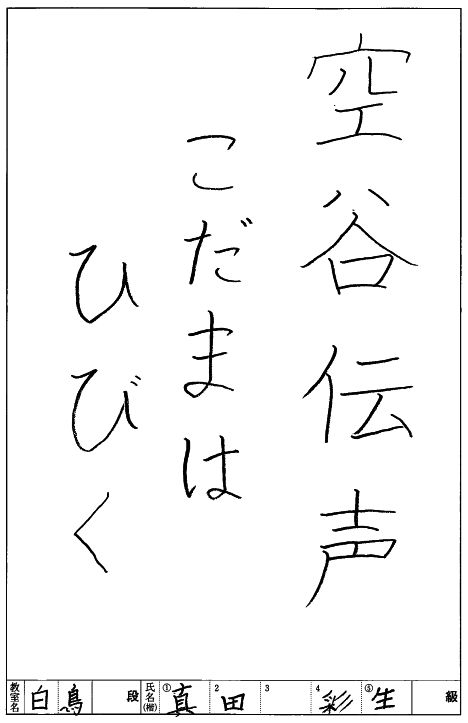 空谷伝声
こだまは
ひびく
教室名 白鳥 段 氏名(楷) ①真 2田 3 4彩 ⑤生 級